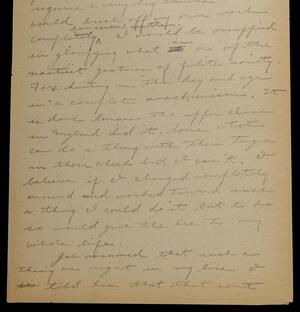 require a very big canvas
would break off my own work
completely, I would be occupied
in glorifying what is one of the
nastiest gestures of polite society.
Fox hunting in this day and age
is a complete anachronism. It
is done because the upper classes
in England did it. Some artists
can do a thing with their tongue
in their cheek but I can't. I
believe if I changed completely
around and worked toward such
a thing I could do it but to do
so would give the lie to my
whole life.
Joe assumed that such a
thing was right in my line. I
told him that that sort